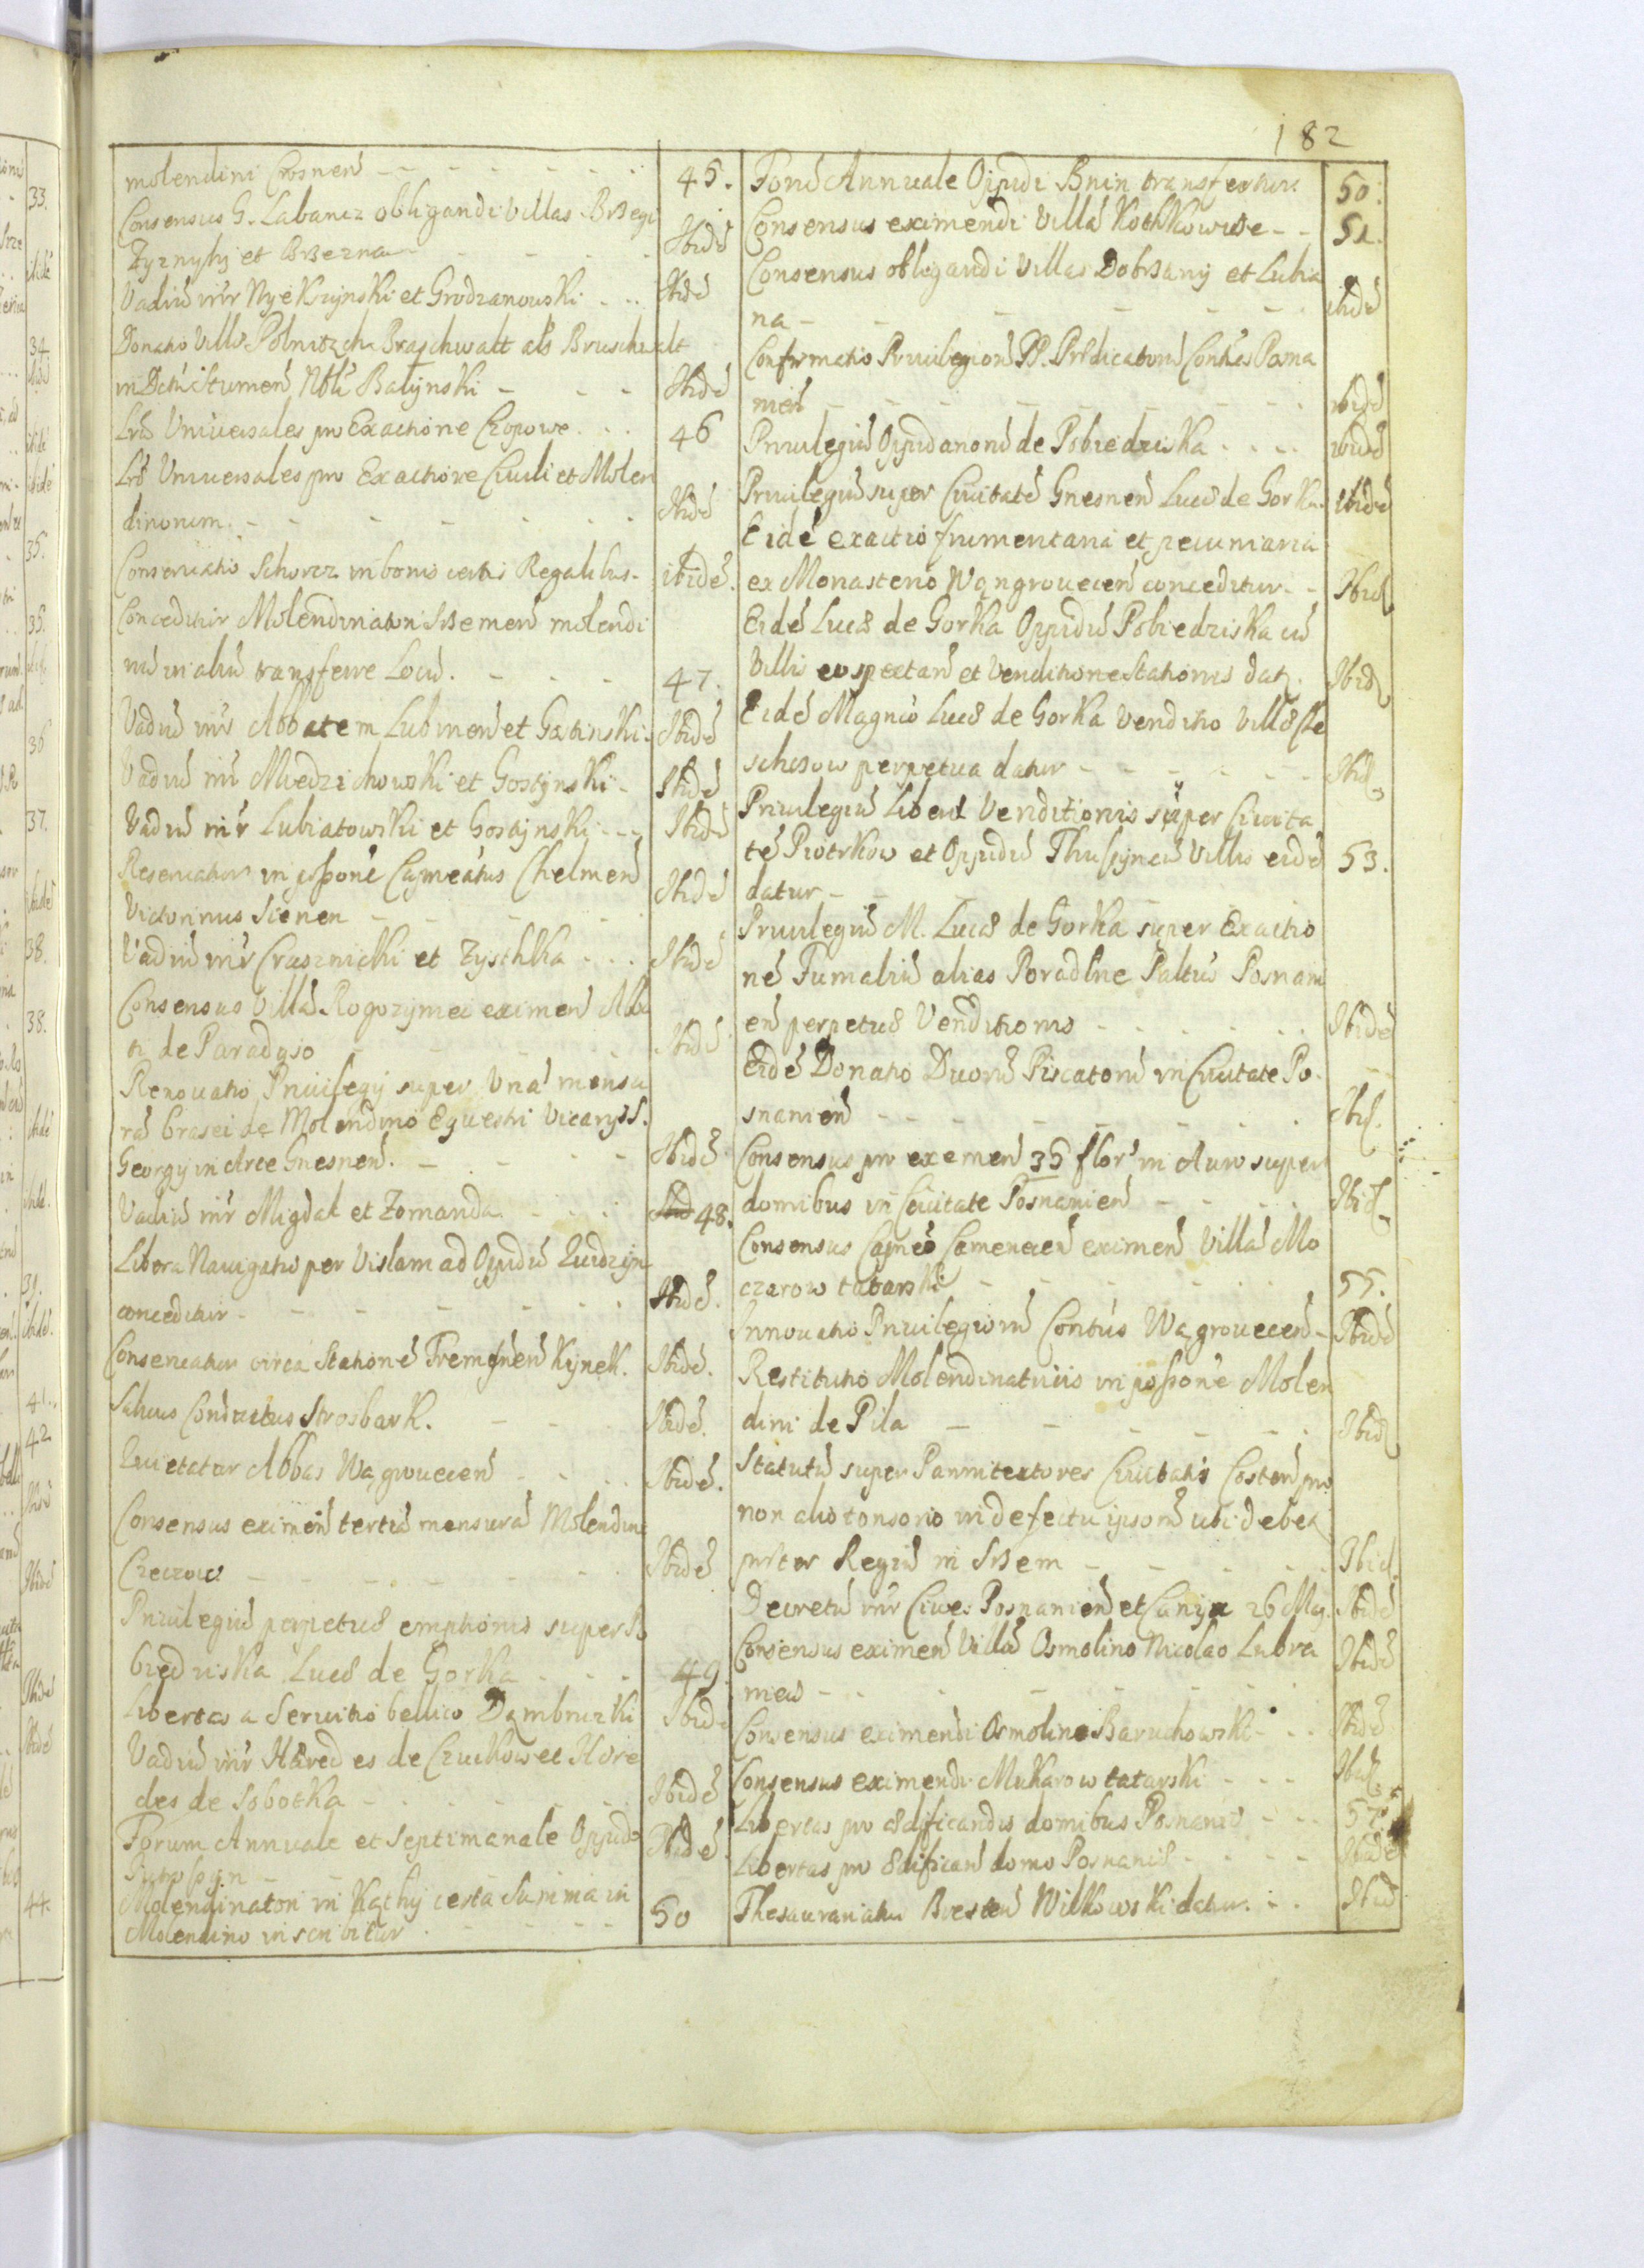 182
molendini Crosneñ 45.
Consensus G. Labancz obligandi Villas Brzegi
Zyznyhy et Brzezna Ibidẽ
Vadiũ int̃r Nyekrzynski et Grodzanowski Ibidẽ
Donatio Villæ Polnitzch Braschwalt als Bruschwalt
in Distũ Stumeñ Nbli Balynski Ibidẽ
Lr̃æ Universales pro Exactione Czopowe 46
Lr̃æ Universales pro Exactione Civili et Molen
dinorum Ibidẽ
Conservatio Schorcz in bonis certis Regalibus ibidẽ.
Conceditur Molendinatori Srzemeñ molendi
nũ in aliũ transferre Locũ. 47.
Vadiũ int̃r Abbatem Lubineñ et Gostinski Ibidẽ
Vadiũ int̃r Miedzichowski et Gostynski Ibidẽ
Vadiũ int̃r Lubiatowski et Gostynski Ibidẽ
Reservatur in possone Capneatus Chelmeñ
Victorinus Sienen Ibidẽ
Vadiũ int̃r Crasznicki et Zyschka Ibidẽ
Consensus Villã Rogozymei eximeñ Abba
ti de Paradyso Ibidẽ
Renovatio Privilegy super Unã mensu
rã brasei de Molendino Equestri Vicarys S.
Georgy in Arce Gnesneñ. Ibidẽ
Vadiũ int̃r Migdal et Zomanda 48.
Libera Navigatio per Vislam ad Oppidũ Quidzyn
conceditur Ibidẽ.
Conservatur circa Stationẽ Tremesneñ Kynek. Ibidẽ.
Salvus Conductus Strosbark. Ibidẽ.
Quietatur Abbas Wągroveceñ Ibidẽ.
Consensus eximeñ tertiã mensurã Molendini
Czeczow Ibidẽ
Privilegiũ perpetuæ emptionis super Po
biedziska Lucæ de Gorka 49
Libertas a Servitio bellico Dąmbruzki Ibidẽ
Vadiũ int̃r Hæredes de Czuckow et Hære
des de Sobotka Ibidẽ
Forum Annuale et Septimanale Oppido
Ibidẽ
Molendinatori in Kąthy certa Summa in
Molendino inscribitur 50
Forũ Annuale Oppidi Bnin transfertur 50.
Consensus eximendi Villã Kothkowice 51.
Consensus obligandi Villas Dobrzany et Lubia
na ibidẽ
Confirmatio Privilegiorũ PP. Prædicatorũ Contũs Posna
nieñ ibidẽ
Privilegiũ Oppidanorũ de Pobiedziska ibidẽ
Privilegiũ super Civitatẽ Gnesneñ Lucæ de Gorka ibidẽ
Eidẽ exactio frumentaria et pecuniaria
ex Monasterio Wąngroveceñ conceditur Ibid
Eidẽ Lucæ de Gorka Oppidũ Pobiedziska cũ
Villis eo spectañ et Venditione Stationis datʒ. Ibid
Eidẽ Magnco Lucæ de Gorka Venditio Villæ Cle
schczow perpetua datur Ibid
Privilegiũ Liberæ Venditionis super Civita
tẽ Piotrkow et Oppidũ Thuszyn cũ Villis eidẽ 53.
datur
Privilegiũ M. Lucæ de Gorka super Exactio
nẽ Fumaliũ alias Poradlne Paltũs Posnani
eñ perpetuæ Venditionis Ibidẽ
Eidẽ Donatio Duorũ Piscatorũ in Civitate Po
snanieñ Ibid.
Consensus pro exemeñ 36 flor in Auro super
domibus in Civitate Posnanieñ Ibid
Consensus Capneo Cameneceñ eximeñ Villã Mo
czarow tatarski 55.
Innovatio Privilegiorũ Contũs Wągroveceñ Ibidẽ
Restitutio Molendinatũris in possonẽ Molen
dini de Pila Ibid
Statutũ super Pannitextores Civitatis Costeñ pro
non alio tonsorio in defectu ipsorũ ubi debeʒ
præter Regiũ in Srzem Ibid.
Decretũ int̃r Cives Posnanieñ et Canija 26 Maj. Ibidẽ
Consensus eximeñ Villã Osmolino Nicolao Lubra
niecz Ibidẽ
Consensus eximendi Osmolino Baruchowski Ibidẽ
Consensus eximendi Mukarow tatarski Ibid
Libertas pro ædificandis domibus Posnaniæ 57.
Libertas pro ædificañ domo Posnaniæ Ibidẽ
Thesaurariatus Bresteñ Wilkowski datur. Ibid